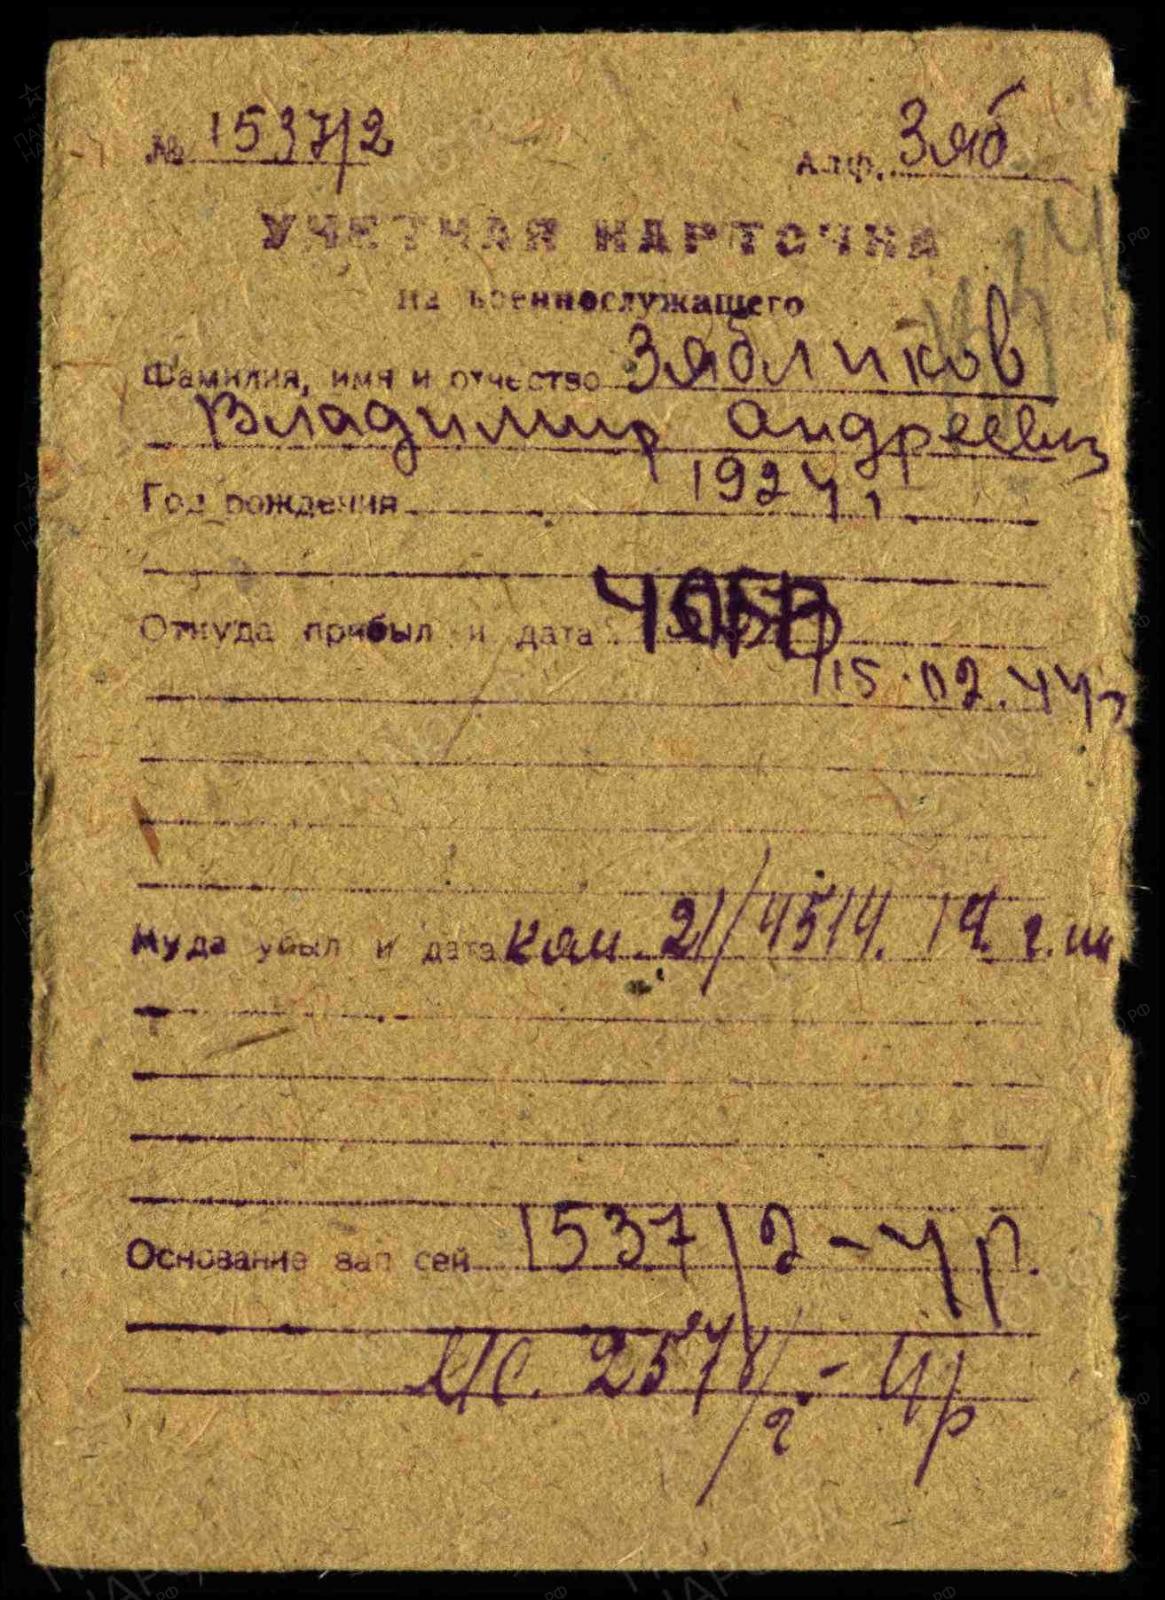 № 1537/2
Алф. Зяб
УЧЕТНАЯ КАРТОЧКА
на военнослужащего
Фамилия, имя и отчество Зябликов
Владимир Андреевич
Год рождения 1924 г.
Откуда прибыл и дата
15.02.44г
Куда убыл и дата ком. 21/4514.
Основание зап сей 1537/2-